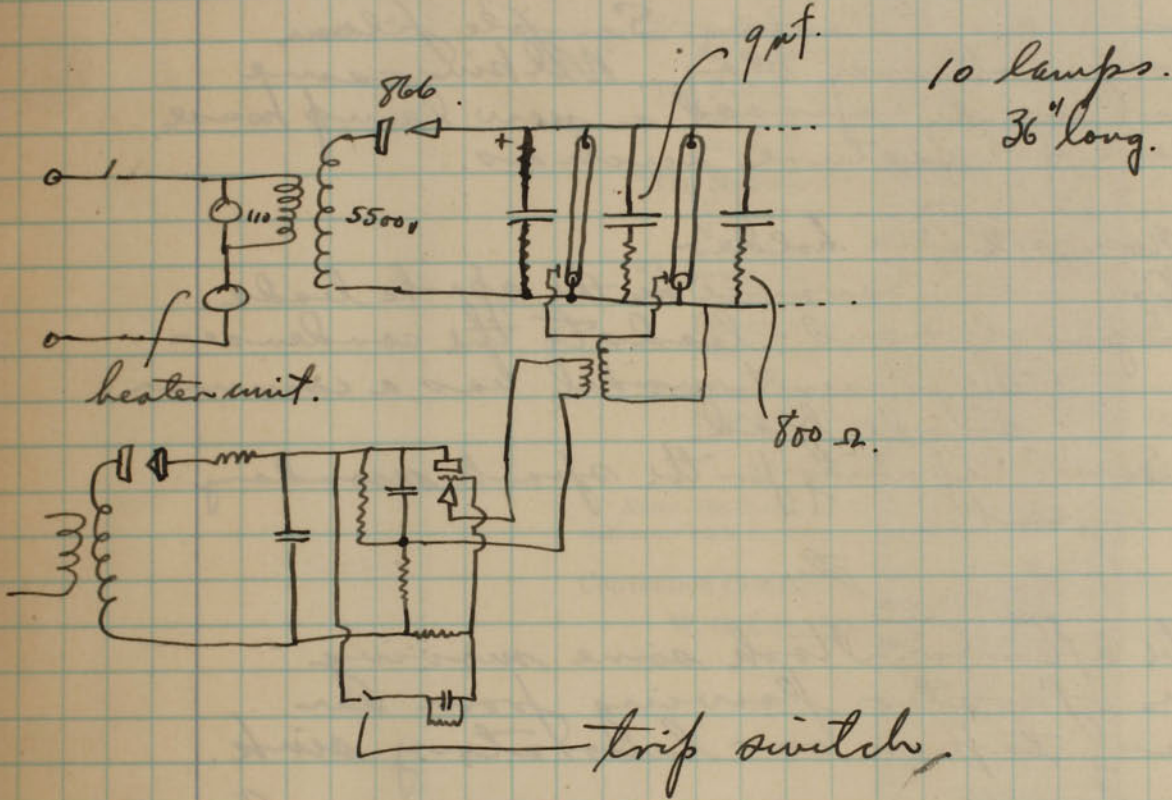 9 μf.
10 lamps.
36" long.
866.
+
110
5500v
heater unit.
800 Ω.
trip switch.